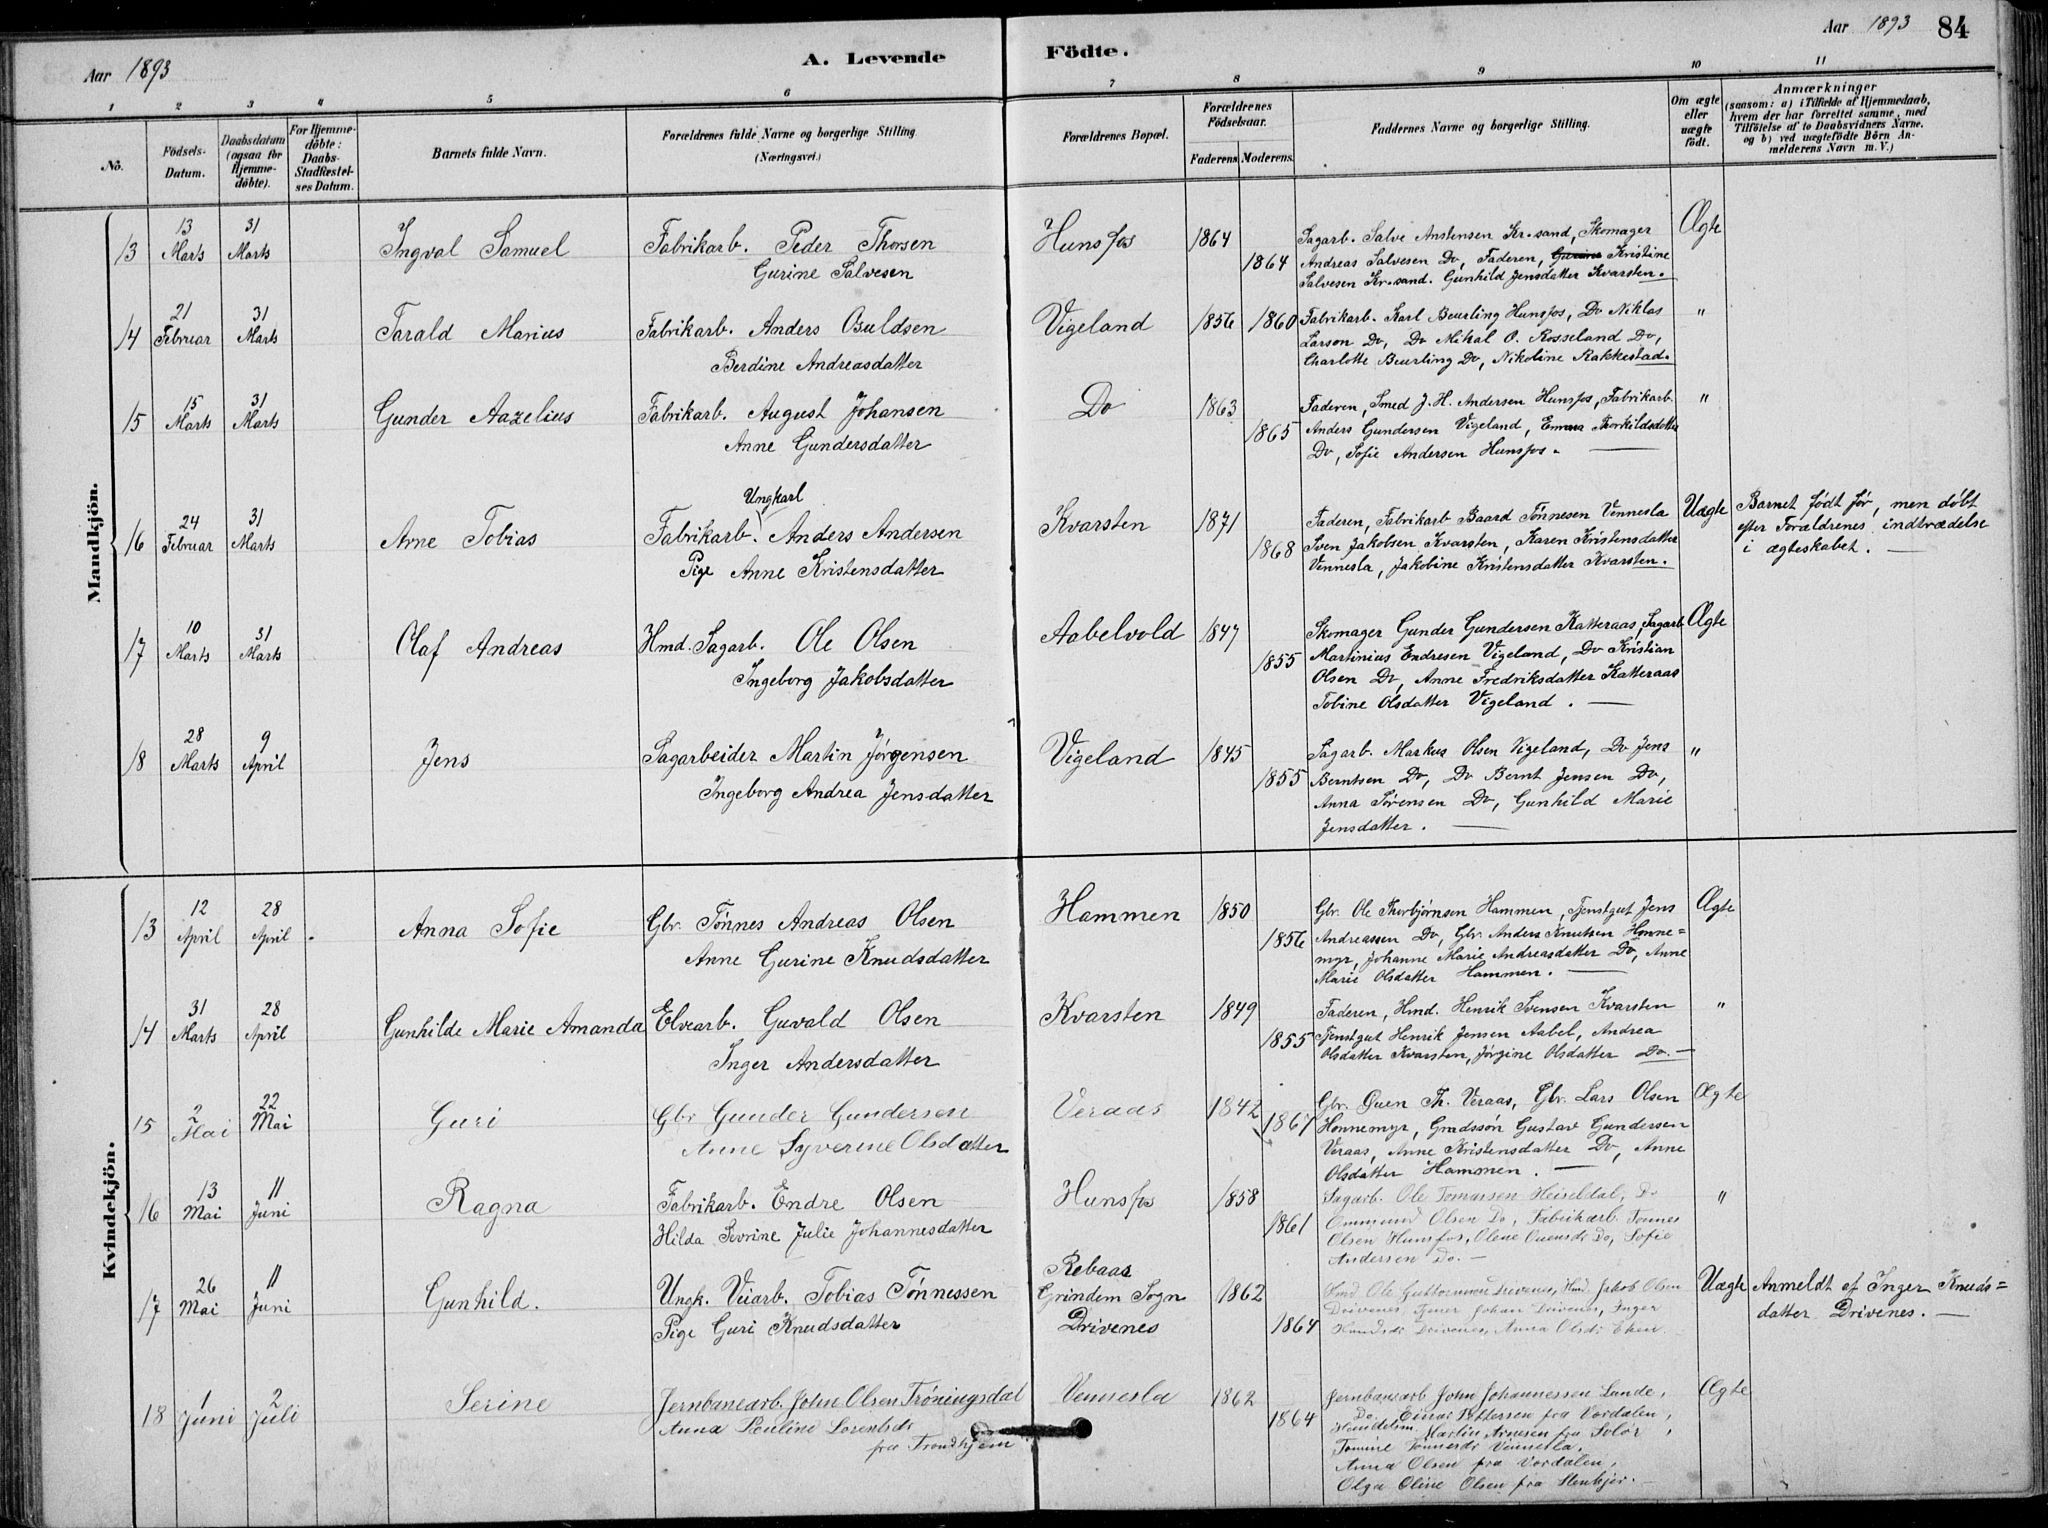 Aar 1893
A. Levende
Födte.
Aar 1893
84
1 2 3 4 5 6 7 8 9 10 11
No.
Födsels-
Datum.
Daabsdatum
(ogsaa for
Hjemme-
döbte).
For Hjemme-
döbte:
Daabs-
Stadfæstel-
ses Datum.
Barnets fulde Navn.
Forældrenes fulde Navne og borgerlige Stilling.
(Næringsvei.)
Forældrenes Bopæl.
Forældrenes
Födselsaar.
Faderens. Moderens.
Faddernes Navne og borgerlige Stilling.
Om ægte
eller
uægte
födt.
Anmærkninger
(saasom: a) i Tilfælde af Hjemmedaab,
hvem der har forrettet samme, med
Tilföielse af to Daabsvidners Navne.
og b) ved uægtefödte Börn An-
melderens Navn m. V.)
Mandkjön.
13
13
Marts
31
Marts
Ingval Samuel
Fabrikarb. Peder Thorsen
Gurine Salvesen
Hunsfos
1864
1864
Sagarb. Salve Anstensen Kr.sand, Skomager
Andreas Salvesen Do, Faderen, Gurine Kristine
Salvesen Kr.sand. Gunhild Jensdatter Kvarsten.
Ægte
14
21
Februar
31
Marts
Tarald Marius
Fabrikarb. Anders Osuldsen
Berdine Andreasdatter
Vigeland
1856
1860
Fabrikarb. Karl Beurling Hunsfos, Do Niklas
Larson Do, Do Mikal O. Rosseland Do,
Charlotte Beurling Do, Nikoline Rakkestad.
"
15
15
Marts
31
Marts
Gunder Aazelius
Fabrikarb. August Johansen
Anne Gundersdatter
Do
1863
1865
Faderen, Smed J. H. Andersen Hunsfos, Fabrikarb.
Anders Gundersen Vigeland, Emma Thorkildsdatter
Do, Sofie Andersen Hunsfos.
"
16
24
Februar
31
Marts
Arne Tobias
Ungkarl
Fabrikarb. Anders Andersen
Pige Anne Kristensdatter
Kvarsten
1871
1868
Faderen, Fabrikarb Baard Tønnesen Vennesla
Sven Jakobsen Kvarsten, Karen Kristensdatter
Vennesla, Jakobine Kristensdatter Kvarsten.
Uægte
Barnet født før, men døbt
efter Forældrenes indtrædelse
i ægteskabet.
17
10
Marts
31
Marts
Olaf Andreas
Hmd. Sagarb. Ole Olsen
Ingeborg Jakobsdatter
Aabelvold
1847
1855
Skomager Gunder Gundersen Katteraas, Sagarb.
Martinius Endresen Vigeland, Do Kristian
Olsen Do, Anne Fredriksdatter Katteraas
Tobine Olsdatter Vigeland.
Ægte
18
28
Marts
9
April
Jens
Sagarbeider Martin Jørgensen
Ingeborg Andrea Jensdatter
Vigeland
1845
1855
Sagarb. Markus Olsen Vigeland, Do Jens
Berntsen Do, Do Bernt Jensen Do,
Anna Sørensen Do, Gunhild Marie
Jensdatter.
"
Kvindekjön.
13
12
April
28
April
Anna Sofie
Gbr. Tønnes Andreas Olsen
Anne Gurine Knudsdatter
Hammen
1850
1856
Gbr. Ole Thorbjørnsen Hammen, Tjenstgut Jens
Andreassen Do, Gbr. Anders Knutsen Honne=
myr, Johanne Marie Andreasdatter Do, Anne
Marie Olsdatter Hammen.
Ægte
14
31
Marts
28
April
Gunhilde Marie Amanda
Elvearb. Guvald Olsen
Inger Andersdatter
Kvarsten
1849
1855
Faderen, Hmd. Henrik Svensen Kvarsten
Tjenstgut Henrik Jensen Aabel, Andrea
Olsdatter Kvarsten, Jørgine Olsdatter Do.
"
15
2
Mai
22
Mai
Guri
Gbr Gunder Gundersen
Anne Syverine Olsdatter
Veraas
1842
1867
Gbr. Ouen Th. Veraas, Gbr. Lars Olsen
Honnemyr, Grædssøn Gustav Gundersen
Veraas, Anne Kristensdatter Do, Anne
Olsdatter Hammen.
Ægte
16
13
Mai
11
Juni
Ragna
Fabrikarb. Endre Olsen
Hilda Sevrine Julie Johannesdatter
Hunsfos
1858
1861
Sagarb. Ole Tomassen Heiseldal, Do
Ommund Olsen Do, Fabrikarb. Tønnes
Olsen Hunsfos, Olene Ouensdr Do, Sofie
Andersen Do.
"
17
26
Mai
11
Juni
Gunhild.
Ungk. Veiarb. Tobias Tønnessen
Pige Guri Knudsdatter
Rebaas
Grindem Sogn
Drivenes
1862
1864
Hmd Ole Guttormsen Drivenes, Hmd. Jakob Olsen
Drivenes, Tjener Johan Drivenes, Inger
Knudsdr Drivenes, Anna Olsdr Eken.
Uægte
Anmeldt af Inger Knuds=
datter Drivenes.
18
1
Juni
2
Juli
Serine
Jernbanearb. John Olsen Trøningsdal
Anna Pauline Lorentsdr
fra Trondhjem
Vennesla
1862
1864
Jernbanearb John Johannessen Lunde,
Do Einar Pettersen fra Vordalen,
Handelsm. Martin Arnesen fra Solør,
Tomine Tønnesdr Vennesla,
Anna Olsen fra Vordalen,
Olga Oline Olsen fra Stenkjer.
Ægte